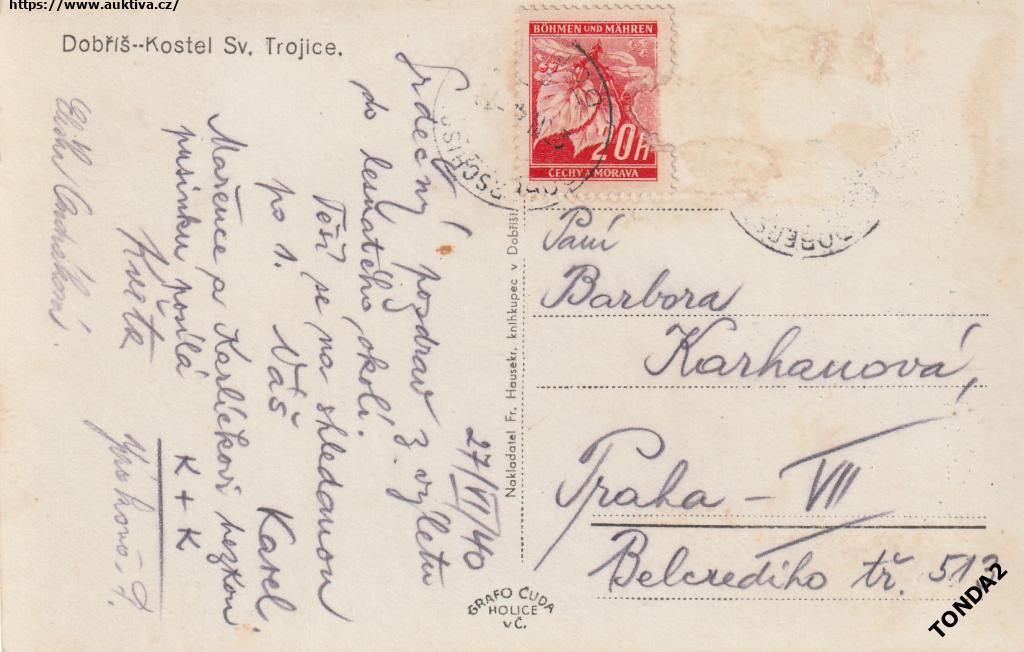 https://www.auktiva.cz/
Dobříš--Kostel Sv. Trojice.
BÖHMEN UND MÄHREN
20h
ČECHY A MORAVA
27/VII/40
Srdečný pozdrav z výletu
do lesnatého okolí.
Těší se na shledanou
po 1. Váš Karel
Mařence a Karlíčkovi hezkou
pusinku posílá K + K
Květa
Nakladatel Fr. Hausekr, knihkupec v Dobříši.
Paní
Barbora
Karhanová,
Praha – VII
Belcrediho tř. 513
GRAFO ČUDA
HOLICE
v Č.
TONDA2